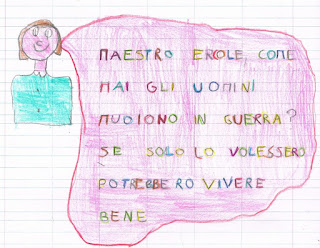 MAESTRO ERCOLE, COME
MAI GLI UOMINI
MUOIONO IN GUERRA?
SE SOLO LO VOLESSERO
POTREBBERO VIVERE
BENE